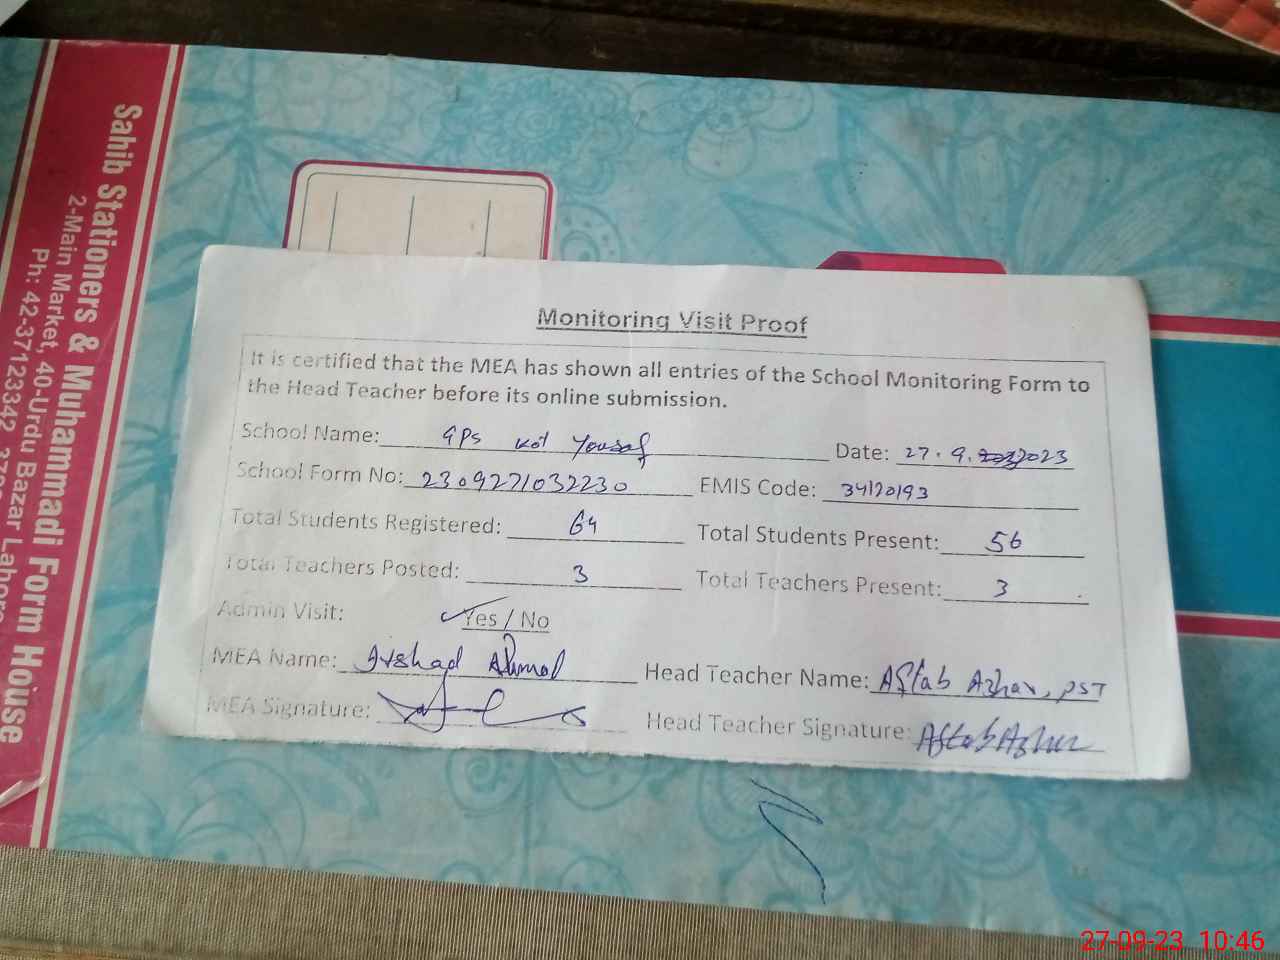 Sahib Stationers & Muhammadi Form House
2-Main Market, 40-Urdu Bazar Lahore
Ph: 42-37123342
Monitoring Visit Proof
It is certified that the MEA has shown all entries of the School Monitoring Form to
the Head Teacher before its online submission.
School Name: GPS Kot Yousaf Date: 27.9.2023
School Form No: 2309271032230 EMIS Code: 34120193
Total Students Registered: 64 Total Students Present: 56
Total Teachers Posted: 3 Total Teachers Present: 3
Admin Visit: Yes / No
MEA Name: Irshad Ahmad Head Teacher Name: Aftab Azhar, PST
MEA Signature: Head Teacher Signature: Aftab Azhar
27-09-23 10:46